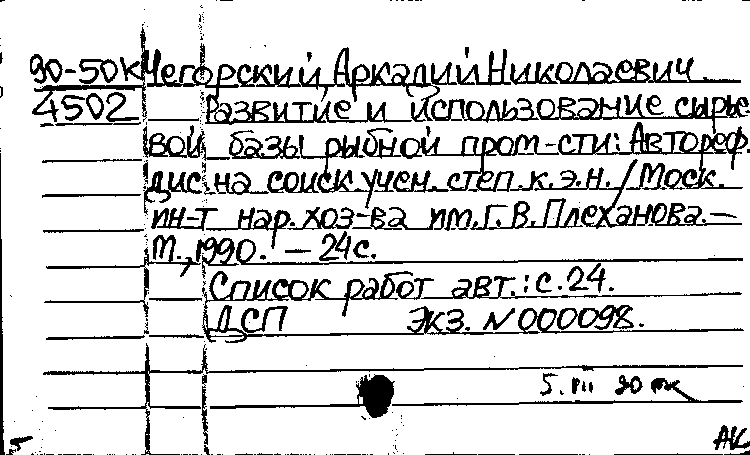 90-50к Чегорский, Аркадий Николаевич.
4502 Развитие и использование сырье
вой базы рыбной пром-сти: Автореф.
дис. на соиск. учен. степ. к. э. н. / Моск.
ин-т нар. хоз-ва им. Г. В. Плеханова. —
М., 1990. — 24 с.
Список работ авт.: с. 24.
ДСП Экз. N 000098.
5. VII 90
АК